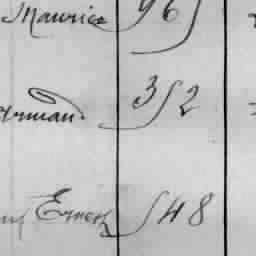 Maurice 965
Armand 352
Ernest 548